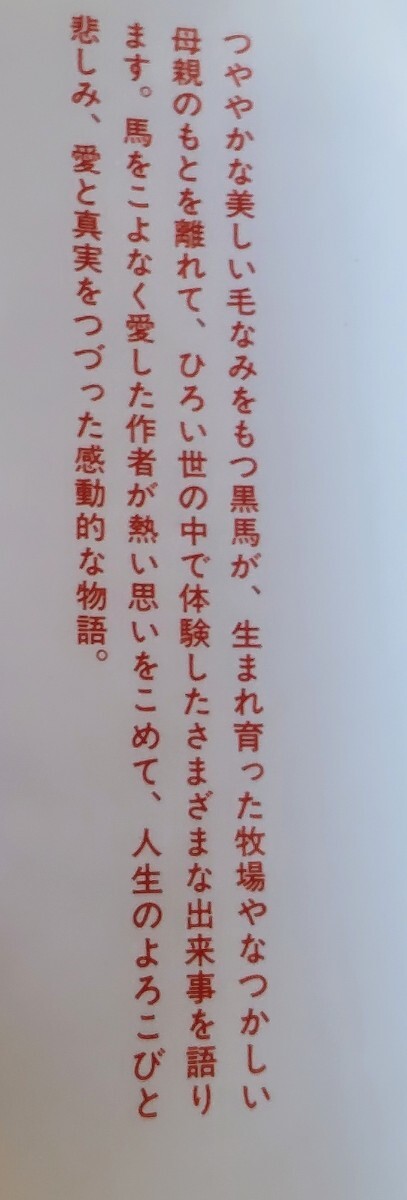 つややかな美しい毛なみをもつ黒馬が、生まれ育った牧場やなつかしい
母親のもとを離れて、ひろい世の中で体験したさまざまな出来事を語り
ます。馬をこよなく愛した作者が熱い思いをこめて、人生のよろこびと
悲しみ、愛と真実をつづった感動的な物語。